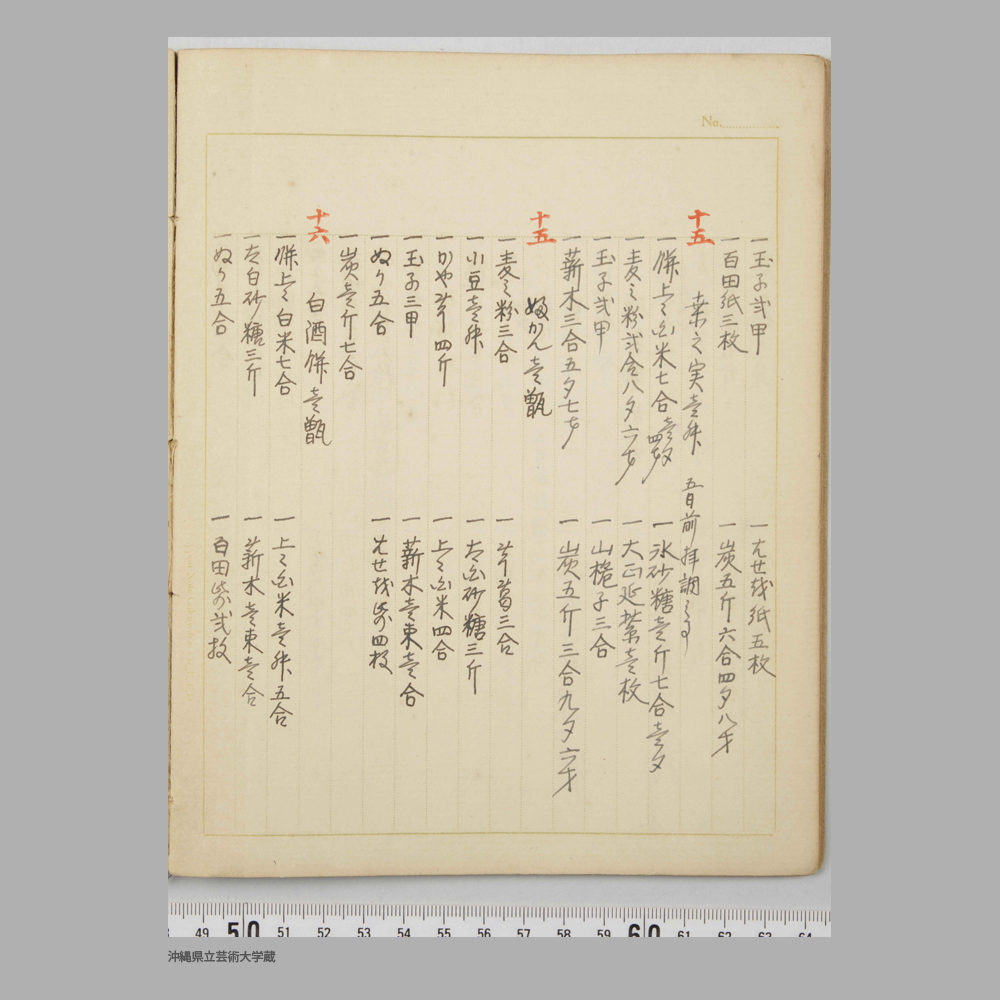 No.
一 玉子弐甲
一 はせ茂紙五枚
一 百田紙三枚
一 炭五斤六合四夕八才
十五
桒之実壱舛 五日前拝調之事
一 餅上々白米七合壱夕四才
一 氷砂糖壱斤七合壱夕
一 麦之粉弐合八夕六才
一 大正延紫壱枚
一 玉子弐甲
一 山梔子三合
一 薪木三合五夕七才
一 炭五斤三合九夕六才
十五
かん壱甑
一 麦之粉三合
一 芋葛三合
一 小豆壱舛
一 太白砂糖三斤
一 かや芋四斤
一 上々白米四合
一 玉子三甲
一 薪木壱束壱合
一 ぬり五合
一 はせ茂紙四枚
一 炭壱斤七合
十六
白酒餅壱甑
一 餅上々白米七合
一 上々白米壱舛五合
一 太白砂糖三斤
一 薪木壱束壱合
一 ぬり五合
一 百田紙弐枚
49 50 51 52 53 54 55 56 57 58 59 60 61 62 63 64
沖縄県立芸術大学蔵